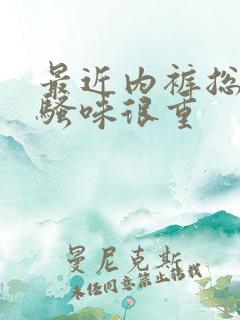 最近内裤总
骚味很重
曼尼克斯
未经同意禁止转载